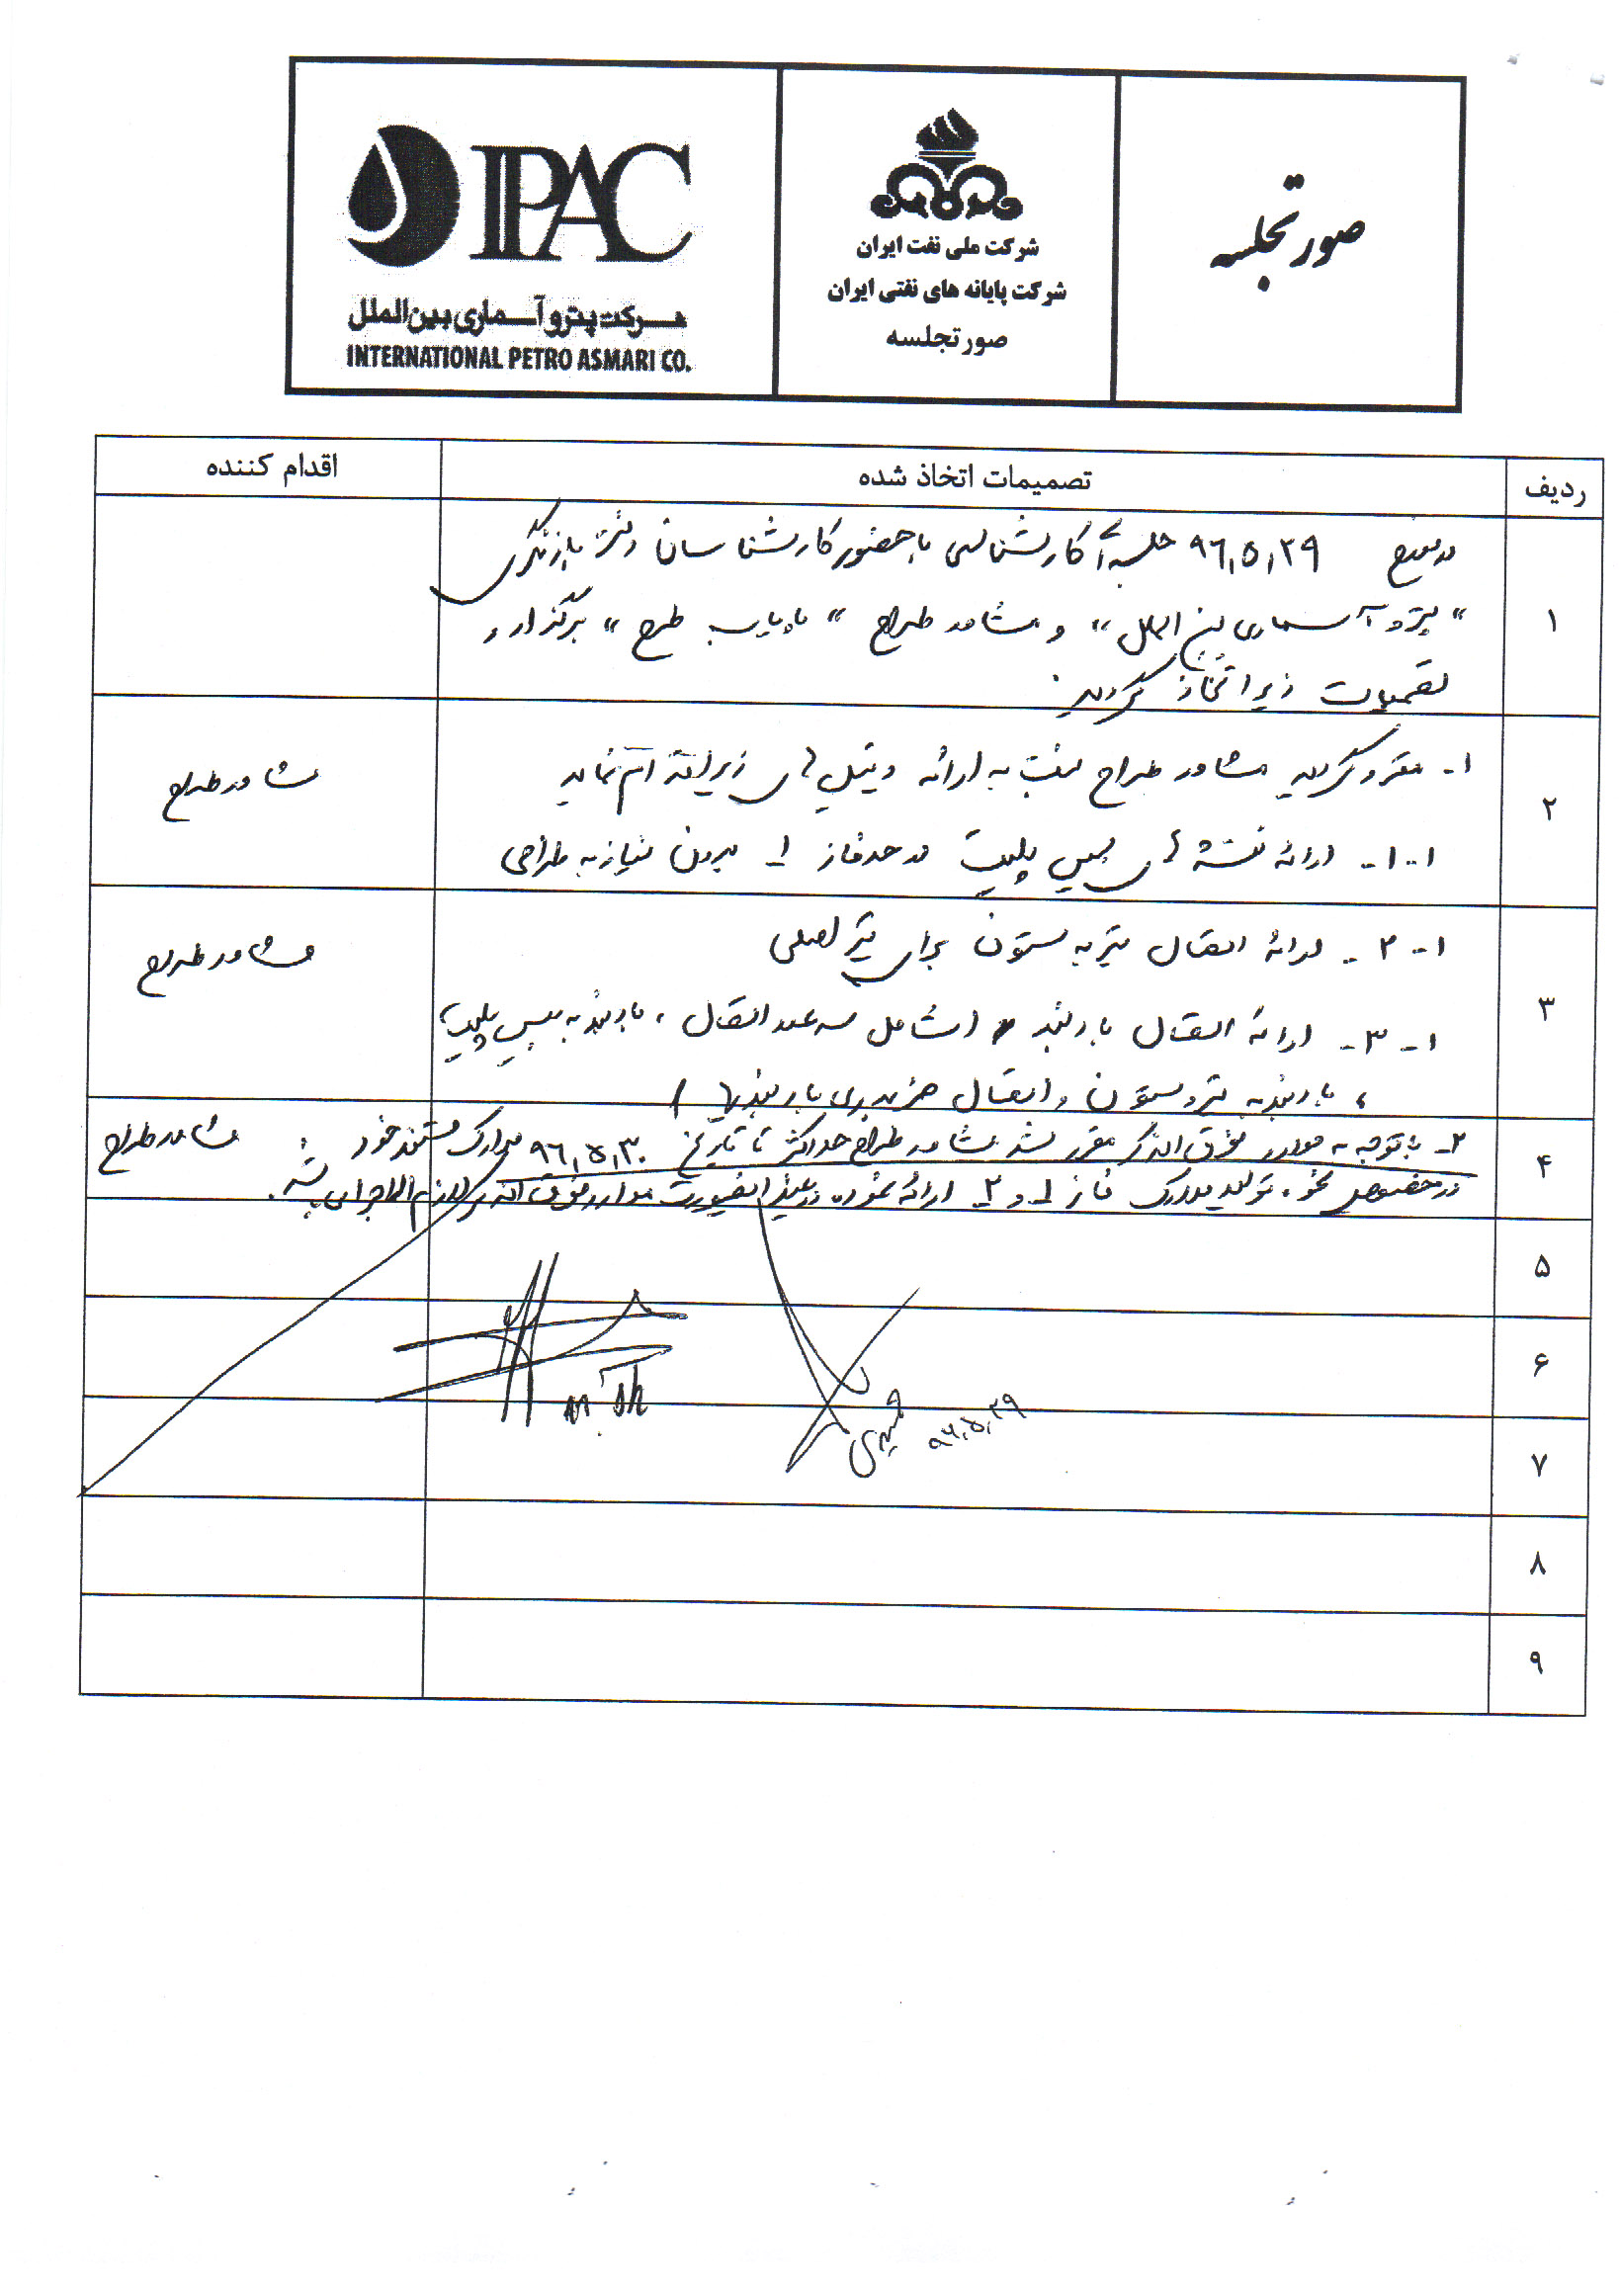 صورتجلسه
شرکت ملی نفت ایران
شرکت پایانه های نفتی ایران
صورتجلسه
IPAC
شرکت پترو آسماری بین الملل
INTERNATIONAL PETRO ASMARI CO.
ردیف تصمیمات اتخاذ شده اقدام کننده
۱
در مورخ ۹۶,۵,۲۹ جلسه کارشناسی با حضور کارشناسان دفتر بازنگری
" پترو آسماری بین الملل " و مشاور طراح " طرح " برگزار و
تصمیمات زیر اتخاذ گردید.
۲
۱- مقرر گردید مشاور طراح نسبت به ارائه دیتیل های زیر اقدام نماید
مشاور طراح
۱-۱- ارائه نقشه های بیس پلیت در حد فاز ۱ بدون نیاز به طراحی
۳
۱-۲- ارائه اتصال تیر به ستون برای تیر اصلی
مشاور طراح
۱-۳- ارائه اتصال بادبند (شامل سه عدد اتصال ، بادبند به بیس پلیت
، بادبند به تیر و ستون و اتصال ضربدری بادبندها )
۴
۲- با توجه به موارد فوق الذکر مقرر شد مشاور طراح حداکثر تا تاریخ ۹۶,۵,۳۰ مدارک مستند خود
مشاور طراح
در خصوص نحوه تولید مدارک فاز ۱ و ۲ ارائه نموده در غیر اینصورت موارد فوق الذکر لازم الاجرا می باشد.
۵
۶
m.sh
۷
۹۶,۵,۲۹
۸
۹